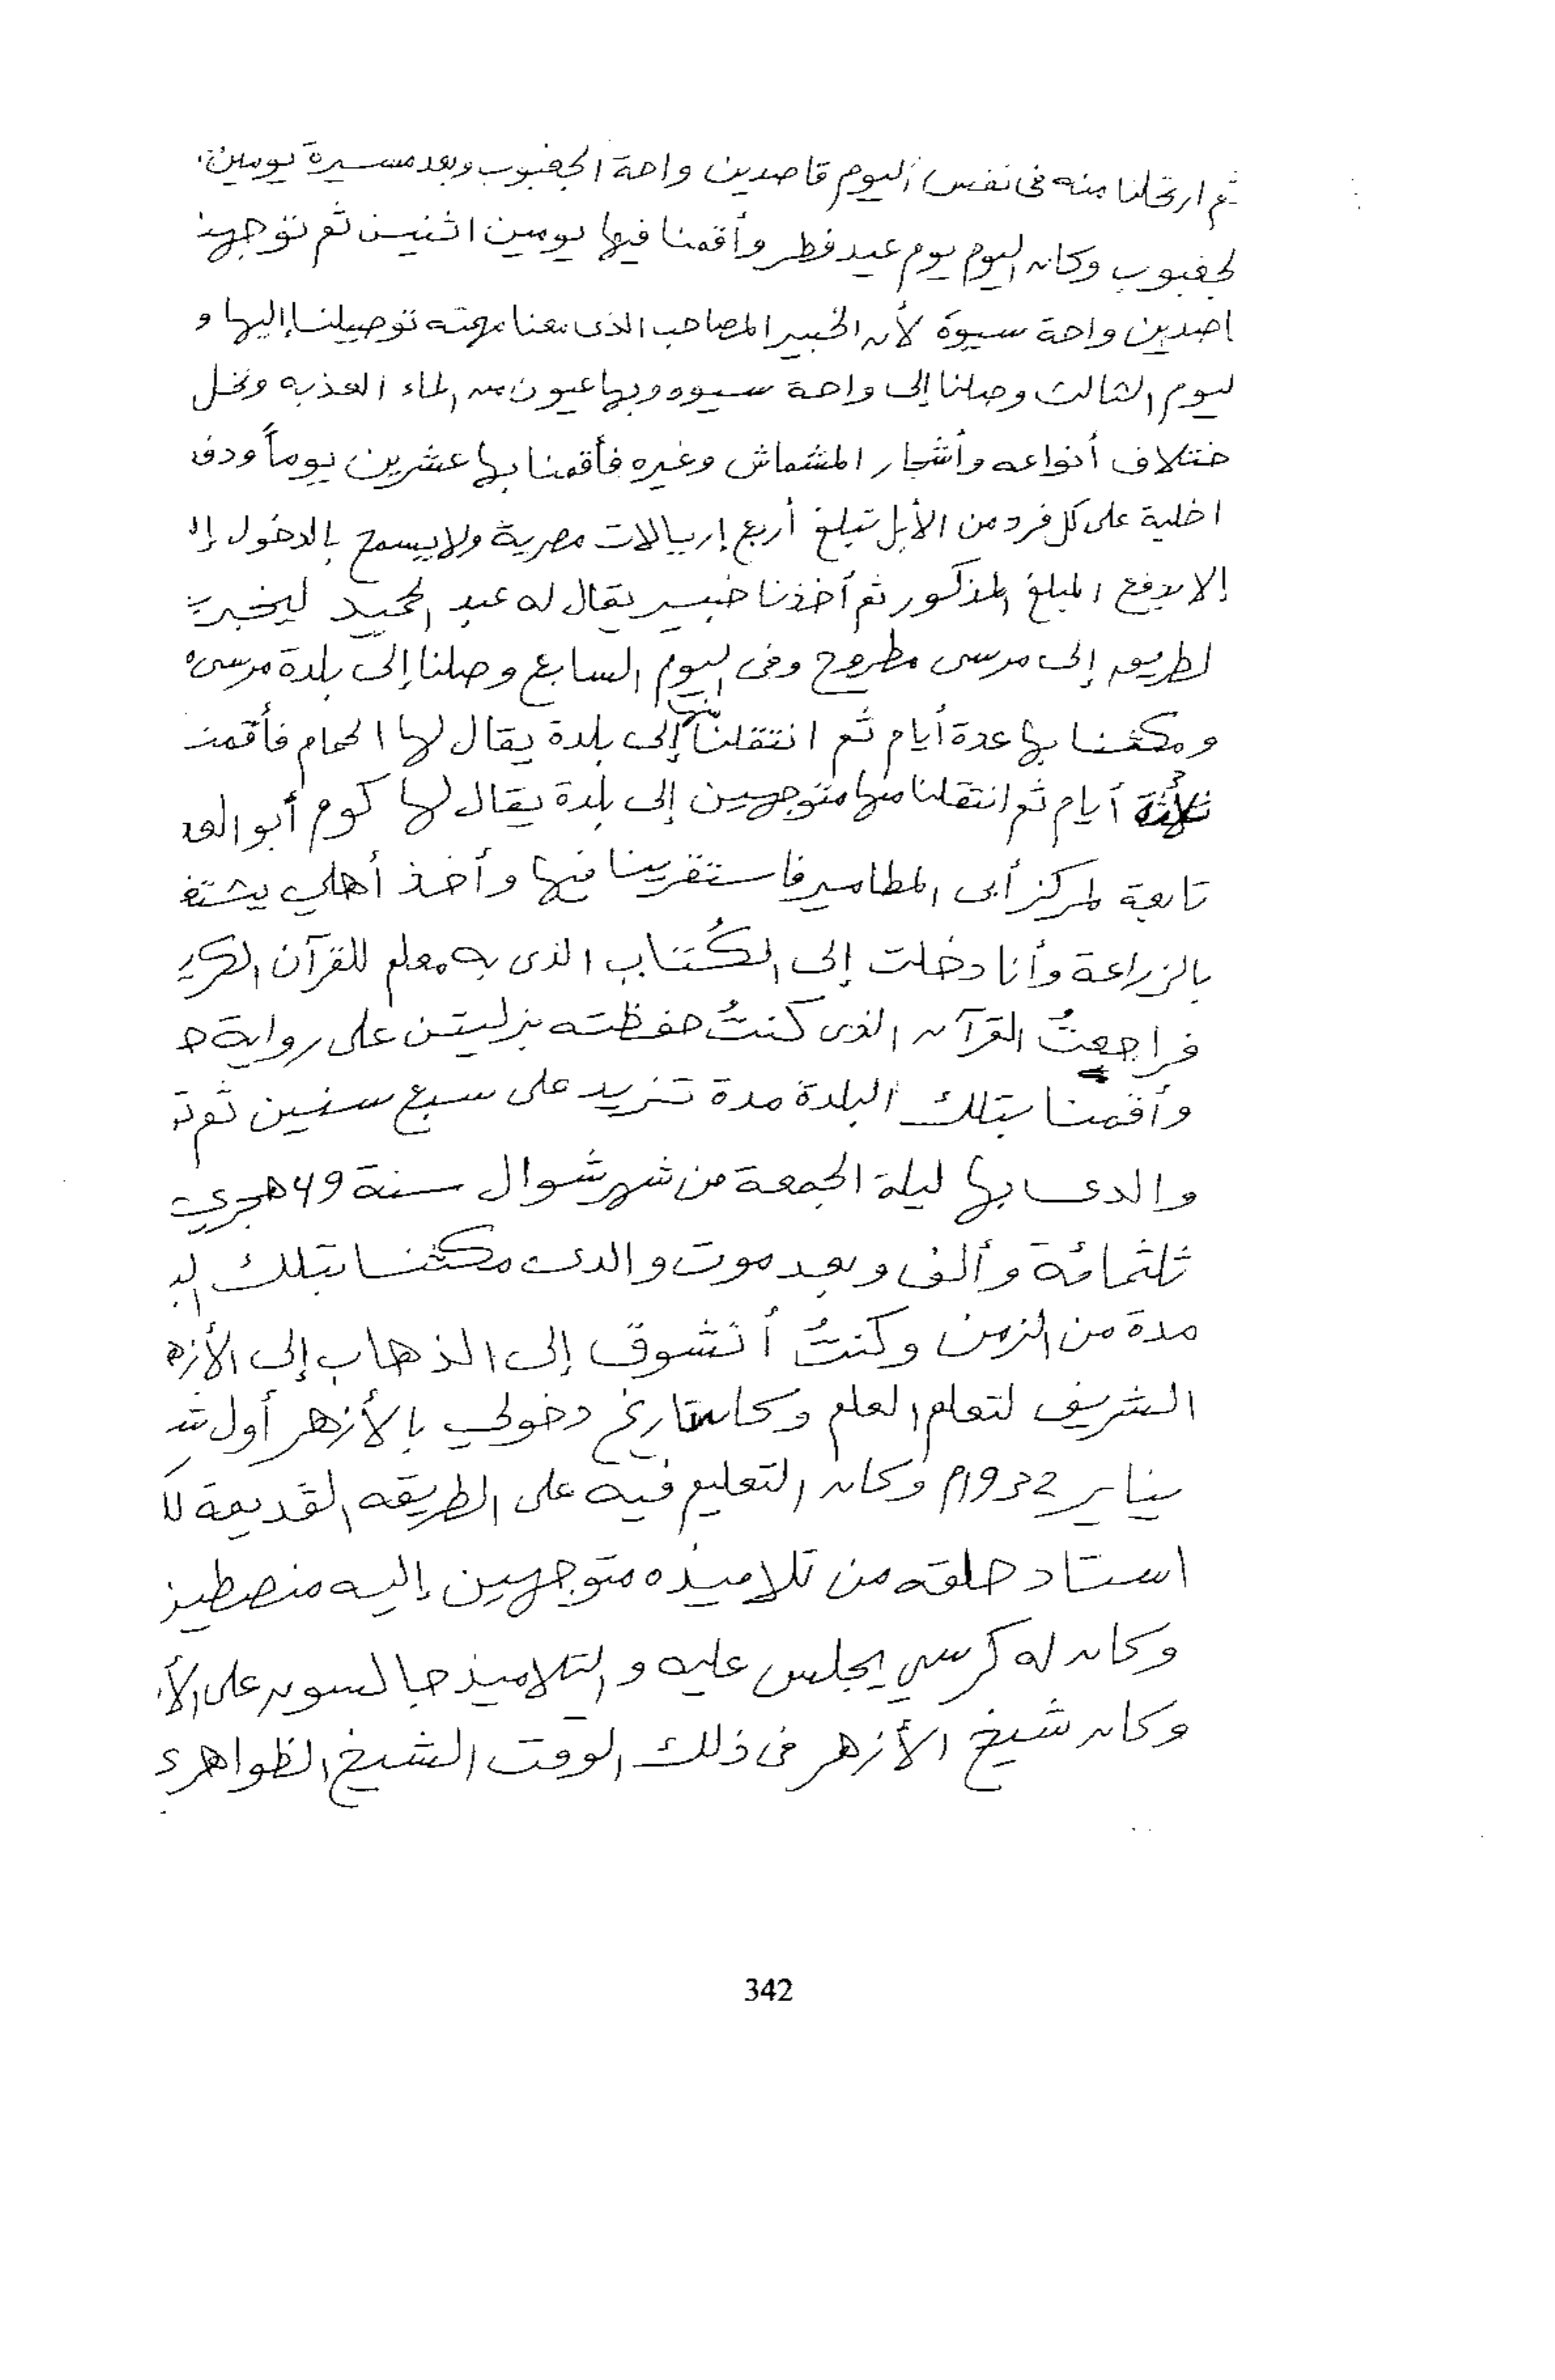 ثم ارتحلنا منه فى نفس اليوم قاصدين واحة الجغبوب وبعد مسيرة يومين
لجغبوب وكان اليوم يوم عيد فطر وأقمنا فيها يومين اثنين ثم توجهنا
اصدين واحة سيوة لأن الخبير المصاحب الذى معنا مهمته توصيلنا إليها و
ليوم الثالث وصلنا إلى واحة سيوه وبها عيون من الماء العذبه ونخل
ختلاف أنواعه وأشجار المشماش وغيره فأقمنا بها عشرين يوماً ودف
اخلية على كل فرد من الأبل تبلغ أربع إريالات مصرية ولا يسمح بالدخول إلا
إلا بدفع المبلغ المذكور ثم أخذنا خبير يقال له عبد الحميد ليخبر
لطريق إلى مرسى مطروح وفى اليوم السابع وصلنا إلى بلدة مرسى
ومكثنا بها عدة أيام ثم انتقلنا منها إلى بلدة يقال لها الحمام فأقمنا
ثلاثة أيام ثم انتقلنا منها متوجهين إلى بلدة يقال لها كوم أبو الق
تابعة لمركز أبى المطامير فاستقرينا فيها وأخذ أهلي يشتغ
بالزراعة وأنا دخلت إلى الكُتاب الذى به معلم للقرآن الكري
فراجعتُ القرآن الذى كنتُ حفظته بنزليتن على رواية ح
وأقمنا بتلك البلدة مدة تزيد على سبع سنين ثم ت
والدى بها ليلة الجمعة من شهر شوال سنة ٤٩ هجري
ثلثمائة وألف وبعد موت والدى مكثنا بتلك الب
مدة من الزمن وكنتُ أتشوق إلى الذهاب إلى الأزه
الشريف لتعلم العلم وكان تاريخ دخولي بالأزهر أول ش
يناير 1932م وكان التعليم فيه على الطريقه القديمة لك
استاد حلقه من تلاميذه متوجهين إليه منصطين
وكان له كرسي يجلس عليه والتلاميذ جالسون على الأ
وكان شيخ الأزهر فى ذلك الوقت الشيخ الظواهرى
342